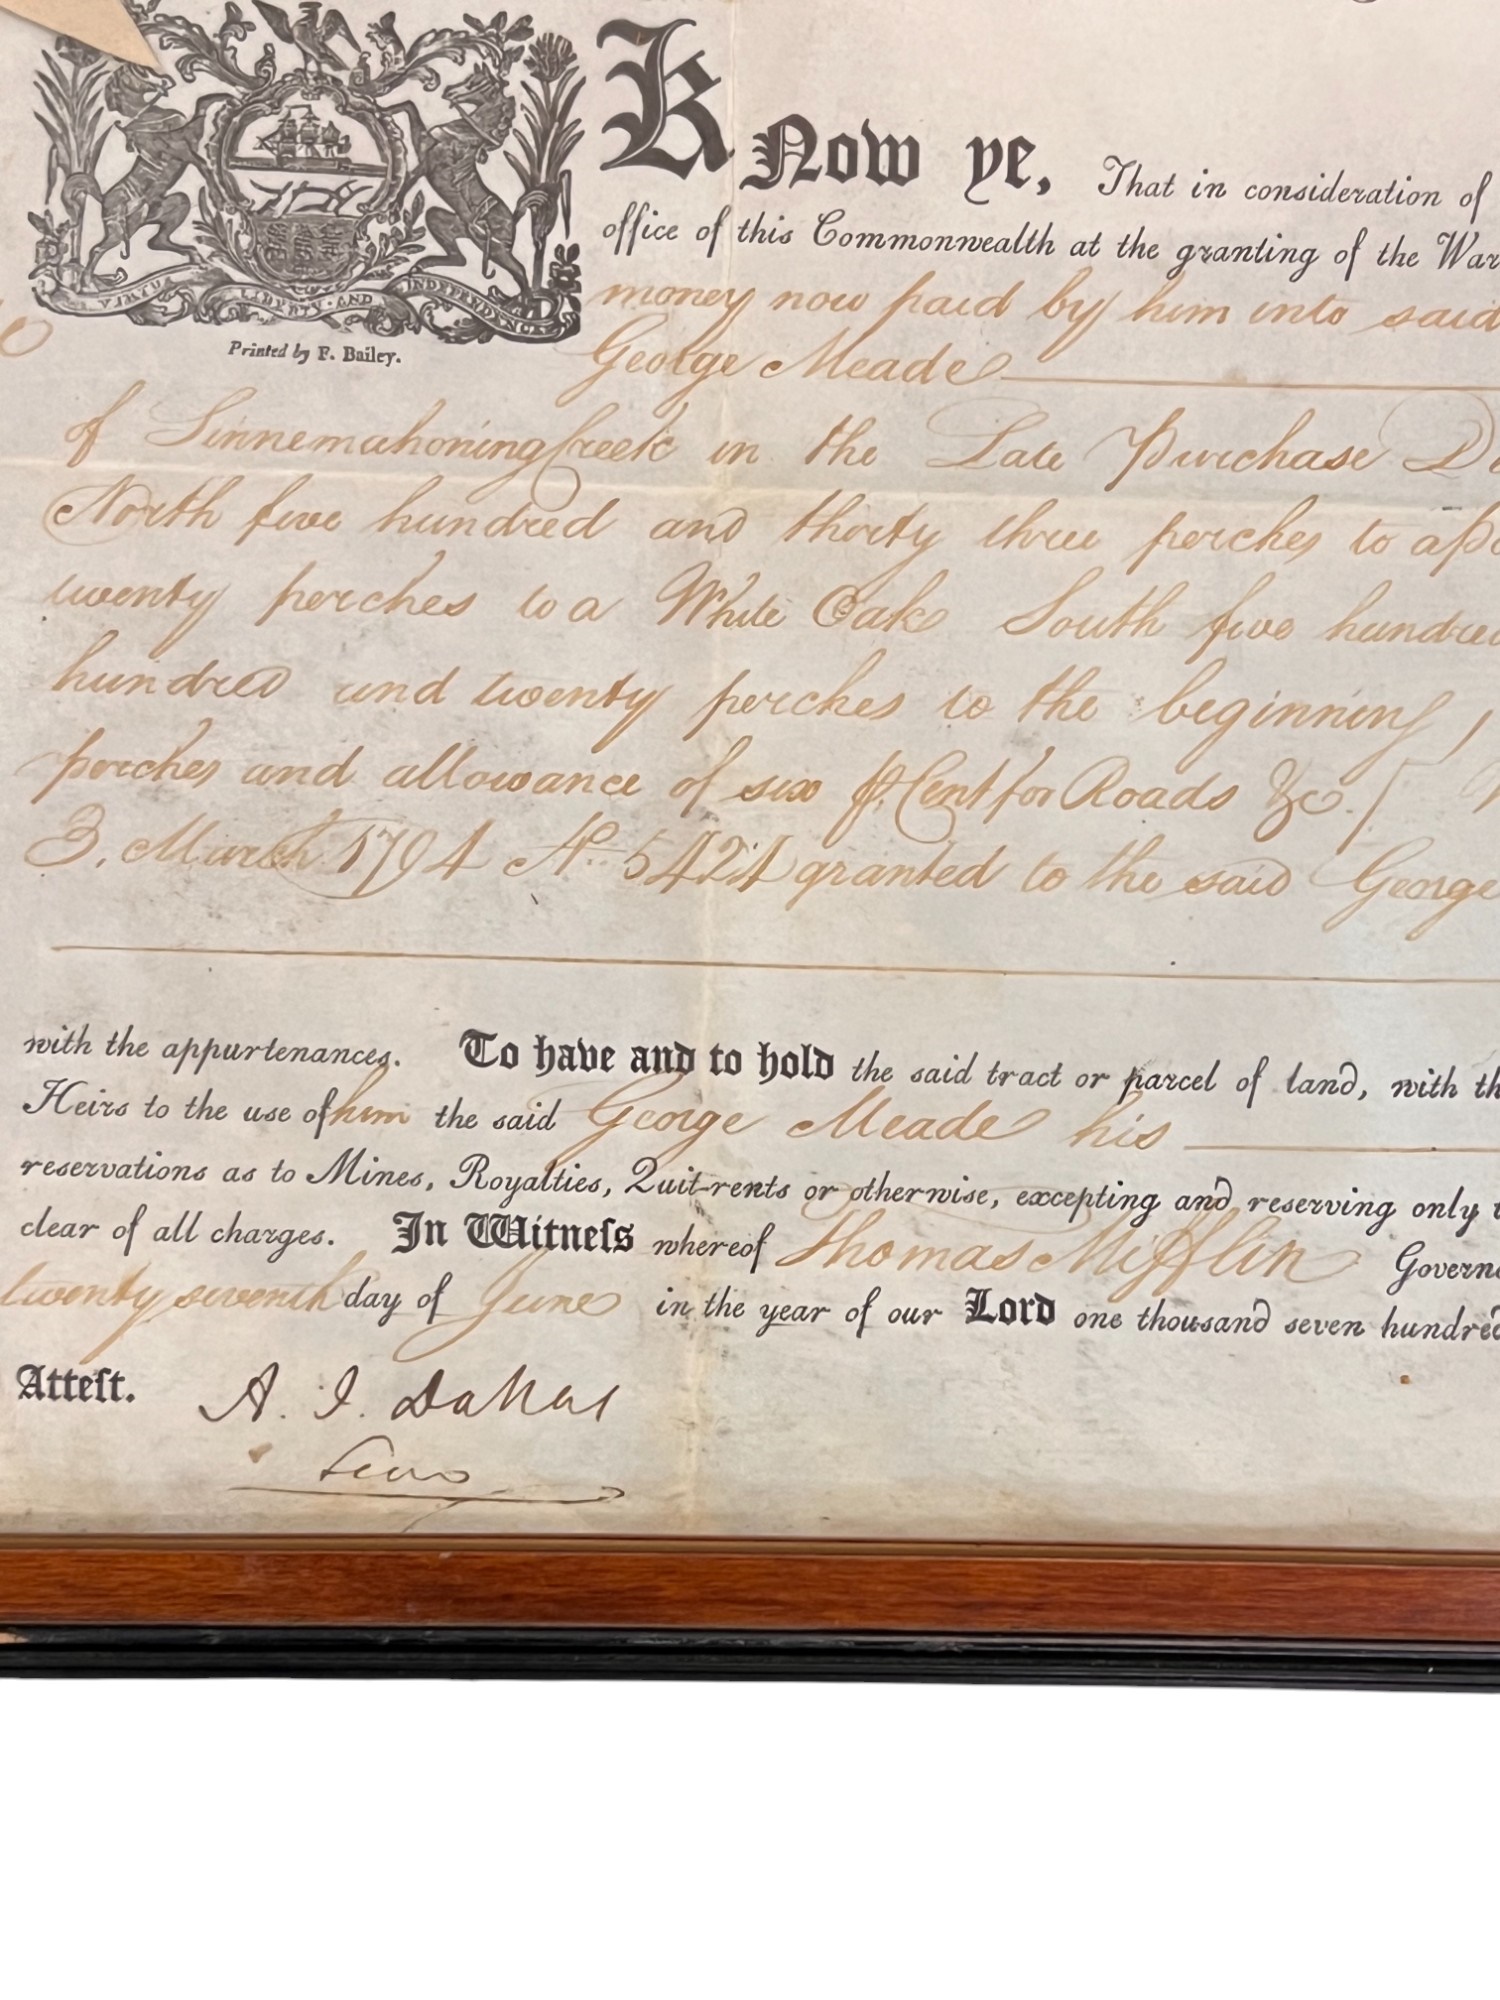 VIRTUE LIBERTY AND INDEPENDENCE
Printed by F. Bailey.
Know ye, That in consideration of
office of this Commonwealth at the granting of the War
money now paid by him into said
George Meade
of Sinnemahoning Creek in the Late Purchase
North five hundred and thirty three perches to a
twenty perches to a White Oak South five hundred
hundred and twenty perches to the beginning,
perches and allowance of six ⅌. Cent for Roads &c.
3. March 1794 No. 5424 granted to the said George
with the appurtenances. To have and to hold the said tract or parcel of land, with th
Heirs to the use of him the said George Meade his
reservations as to Mines, Royalties, Quit-rents or otherwise, excepting and reserving only
clear of all charges. In Witneſs whereof Thomas Mifflin Govern
twenty seventh day of June in the year of our Lord one thousand seven hundred
Atteſt. A. J. Dallas
Secy